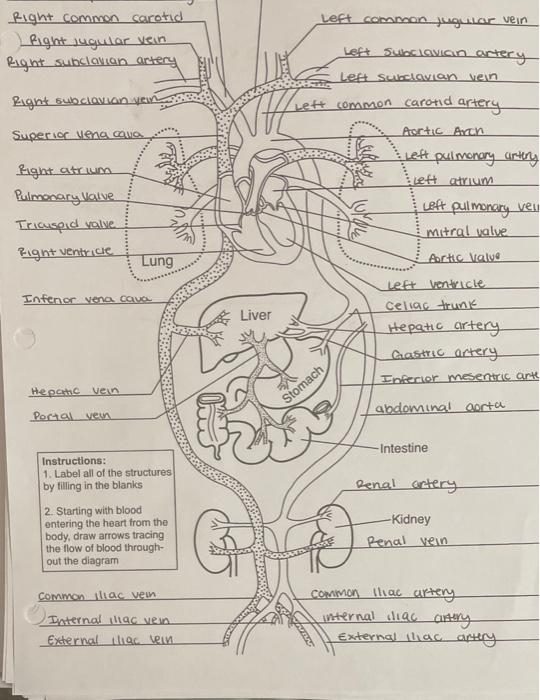 Right common carotid
Right jugular vein
Right subclavian artery
Right subclavian vein
Superior vena cava
Right atrium
Pulmonary Valve
Tricuspid valve
Right ventricle
Inferior vena cava
Hepatic vein
Portal vein
Left common jugular vein
Left Subclavian artery
Left subclavian vein
Left common carotid artery
Aortic Arch
Left pulmonary artery
Left atrium
Left pulmonary vein
mitral valve
Aortic Valve
Left ventricle
Celiac trunk
Hepatic artery
Gastric artery
Inferior mesentric arte
abdominal aorta
Lung
Liver
Stomach
Intestine
Instructions:
1. Label all of the structures
by filling in the blanks
2. Starting with blood
entering the heart from the
body, draw arrows tracing
the flow of blood through-
out the diagram
Renal artery
Kidney
Renal vein
Common iliac vein
Internal iliac vein
External iliac vein
Common iliac artery
internal iliac artery
External iliac artery